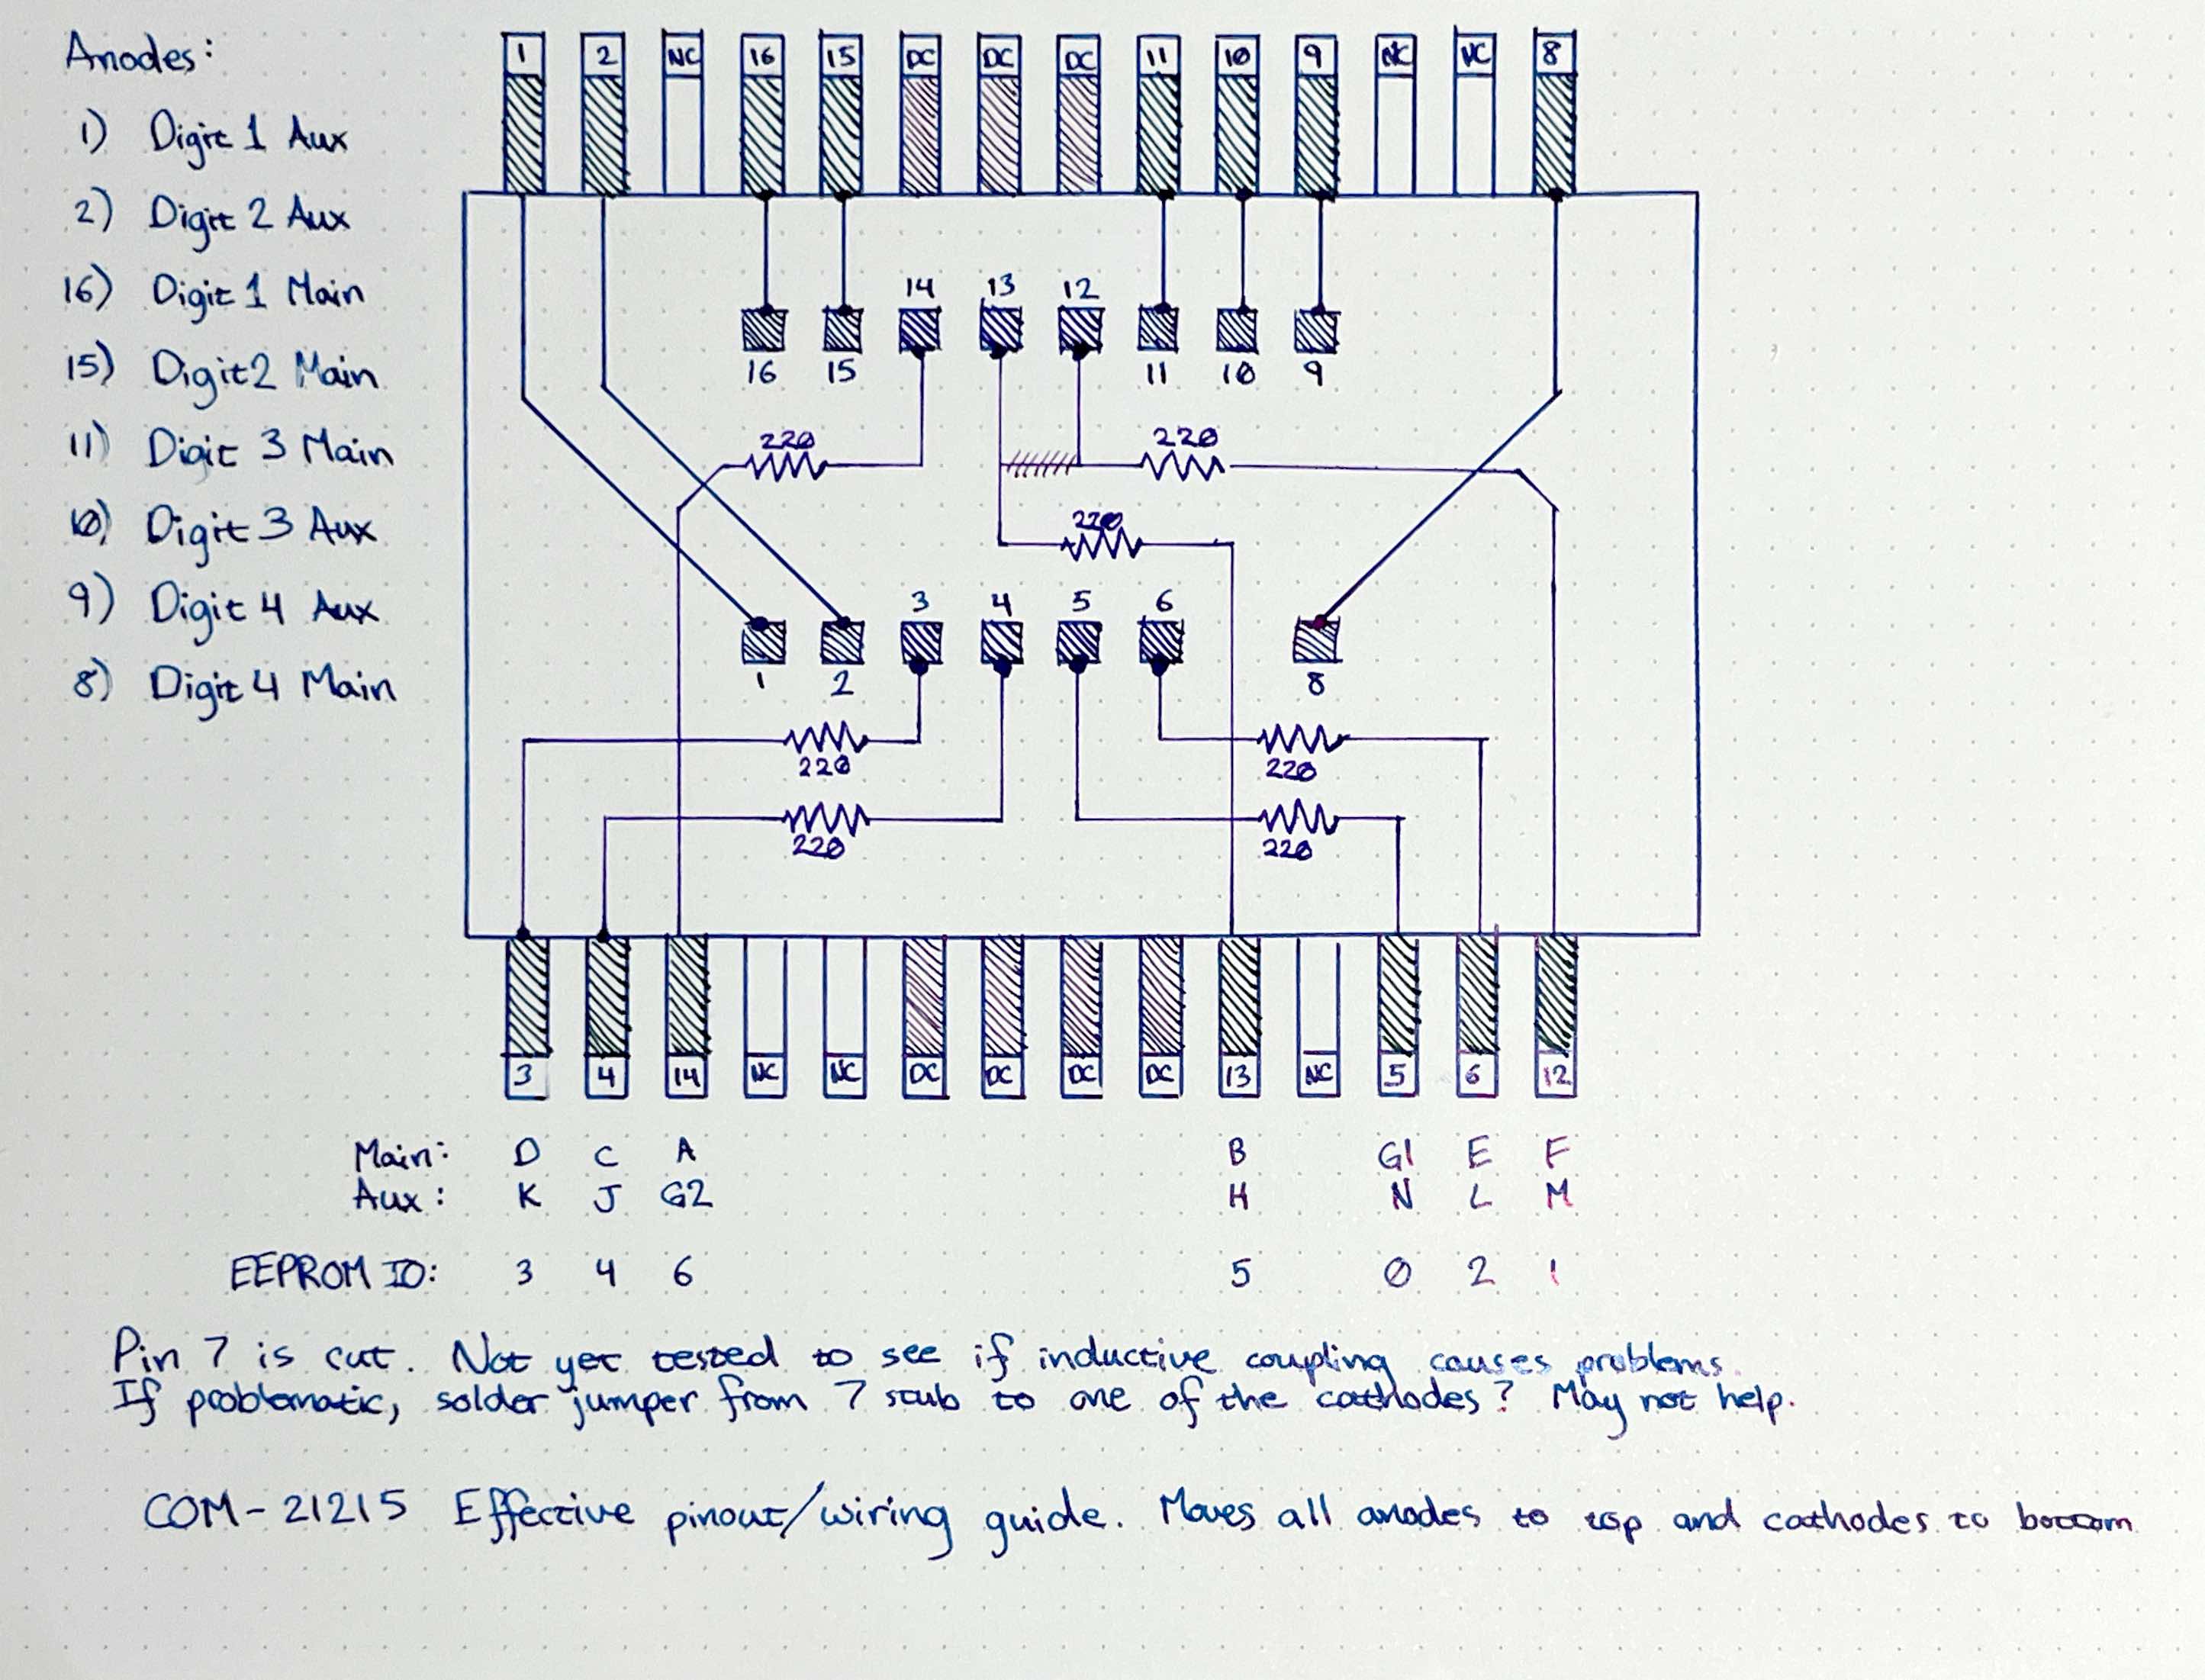 Anodes:
1) Digit 1 Aux
2) Digit 2 Aux
16) Digit 1 Main
15) Digit 2 Main
11) Digit 3 Main
10) Digit 3 Aux
9) Digit 4 Aux
8) Digit 4 Main
1 2 NC 16 15 DC DC DC 11 10 9 NC NC 8
14 13 12
16 15 11 10 9
220 220
220
3 4 5 6
1 2 8
220 220
220 220
3 4 14 NC NC DC DC DC DC 13 NC 5 6 12
Main: D C A B G1 E F
Aux: K J G2 H N L M
EEPROM IO: 3 4 6 5 0 2 1
Pin 7 is cut. Not yet tested to see if inductive coupling causes problems.
If problematic, solder jumper from 7 stub to one of the cathodes? May not help.
COM-21215 Effective pinout/wiring guide. Moves all anodes to top and cathodes to bottom